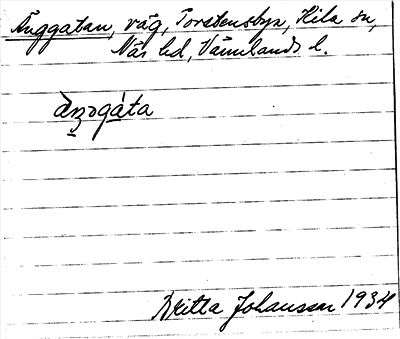 Änggatan, väg, Torstensbyn, Kila sn,
Näs hd, Värmlands l.
Britta Johansson 1934